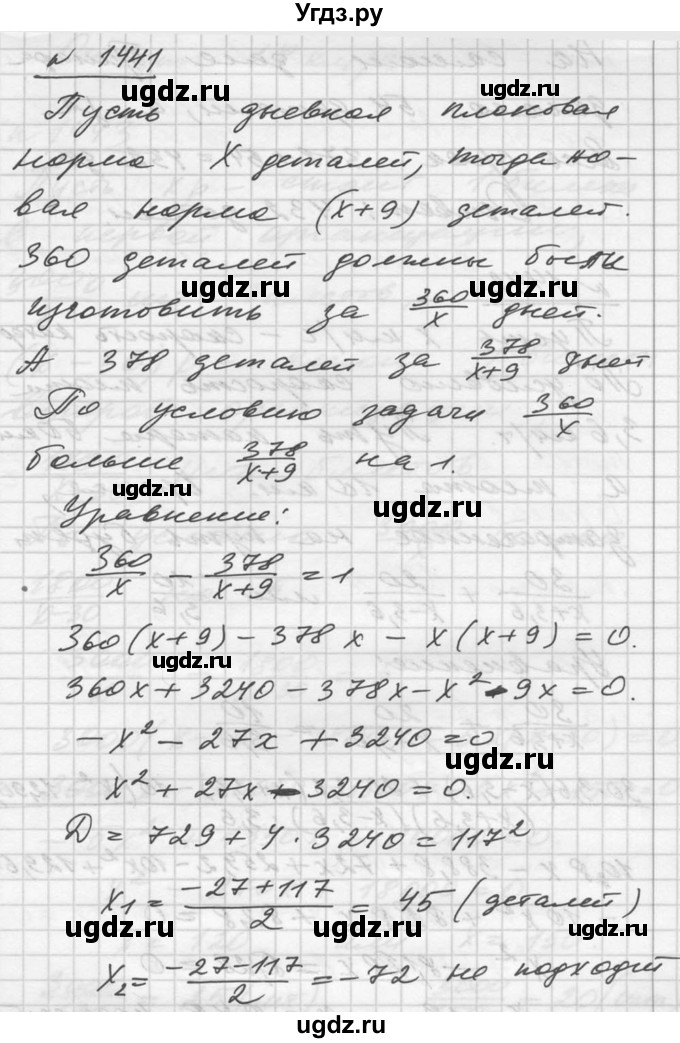 Угдз.ру
№ 1441
ugdz.ru
Пусть дневная плановая
ugdz.ru
норма x деталей, тогда но-
вая норма (x+9) деталей.
360 деталей должны были
ugdz.ru
изготовить за 360/x дней.
А 378 деталей за 378/(x+9) дней
ugdz.ru
По условию задачи 360/x
больше 378/(x+9) на 1.
ugdz.ru
ugdz.ru
Уравнение:
360/x - 378/(x+9) = 1
360(x+9) - 378x - x(x+9) = 0.
ugdz.ru
360x + 3240 - 378x - x² - 9x = 0.
-x² - 27x + 3240 = 0
ugdz.ru
x² + 27x - 3240 = 0.
D = 729 + 4 · 3240 = 117²
x₁ = (-27+117)/2 = 45 (деталей)
ugdz.ru
ugdz.ru
x₂ = (-27-117)/2 = -72 не подходит
ugdz.ru